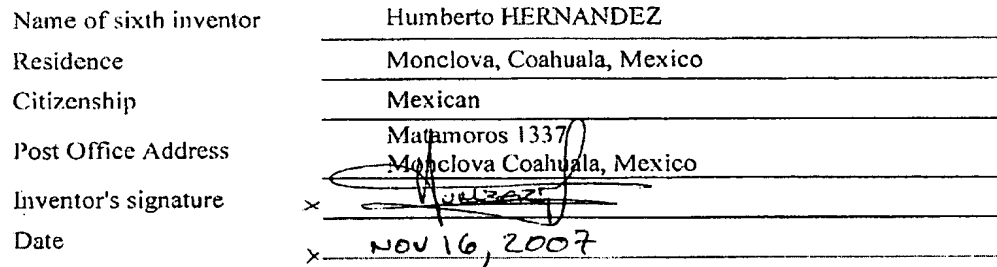 Name of sixth inventor Humberto HERNANDEZ
Residence Monclova, Coahuala, Mexico
Citizenship Mexican
Matamoros 1337
Post Office Address
Monclova Coahuala, Mexico
Inventor's signature x
Date x NOV 16, 2007